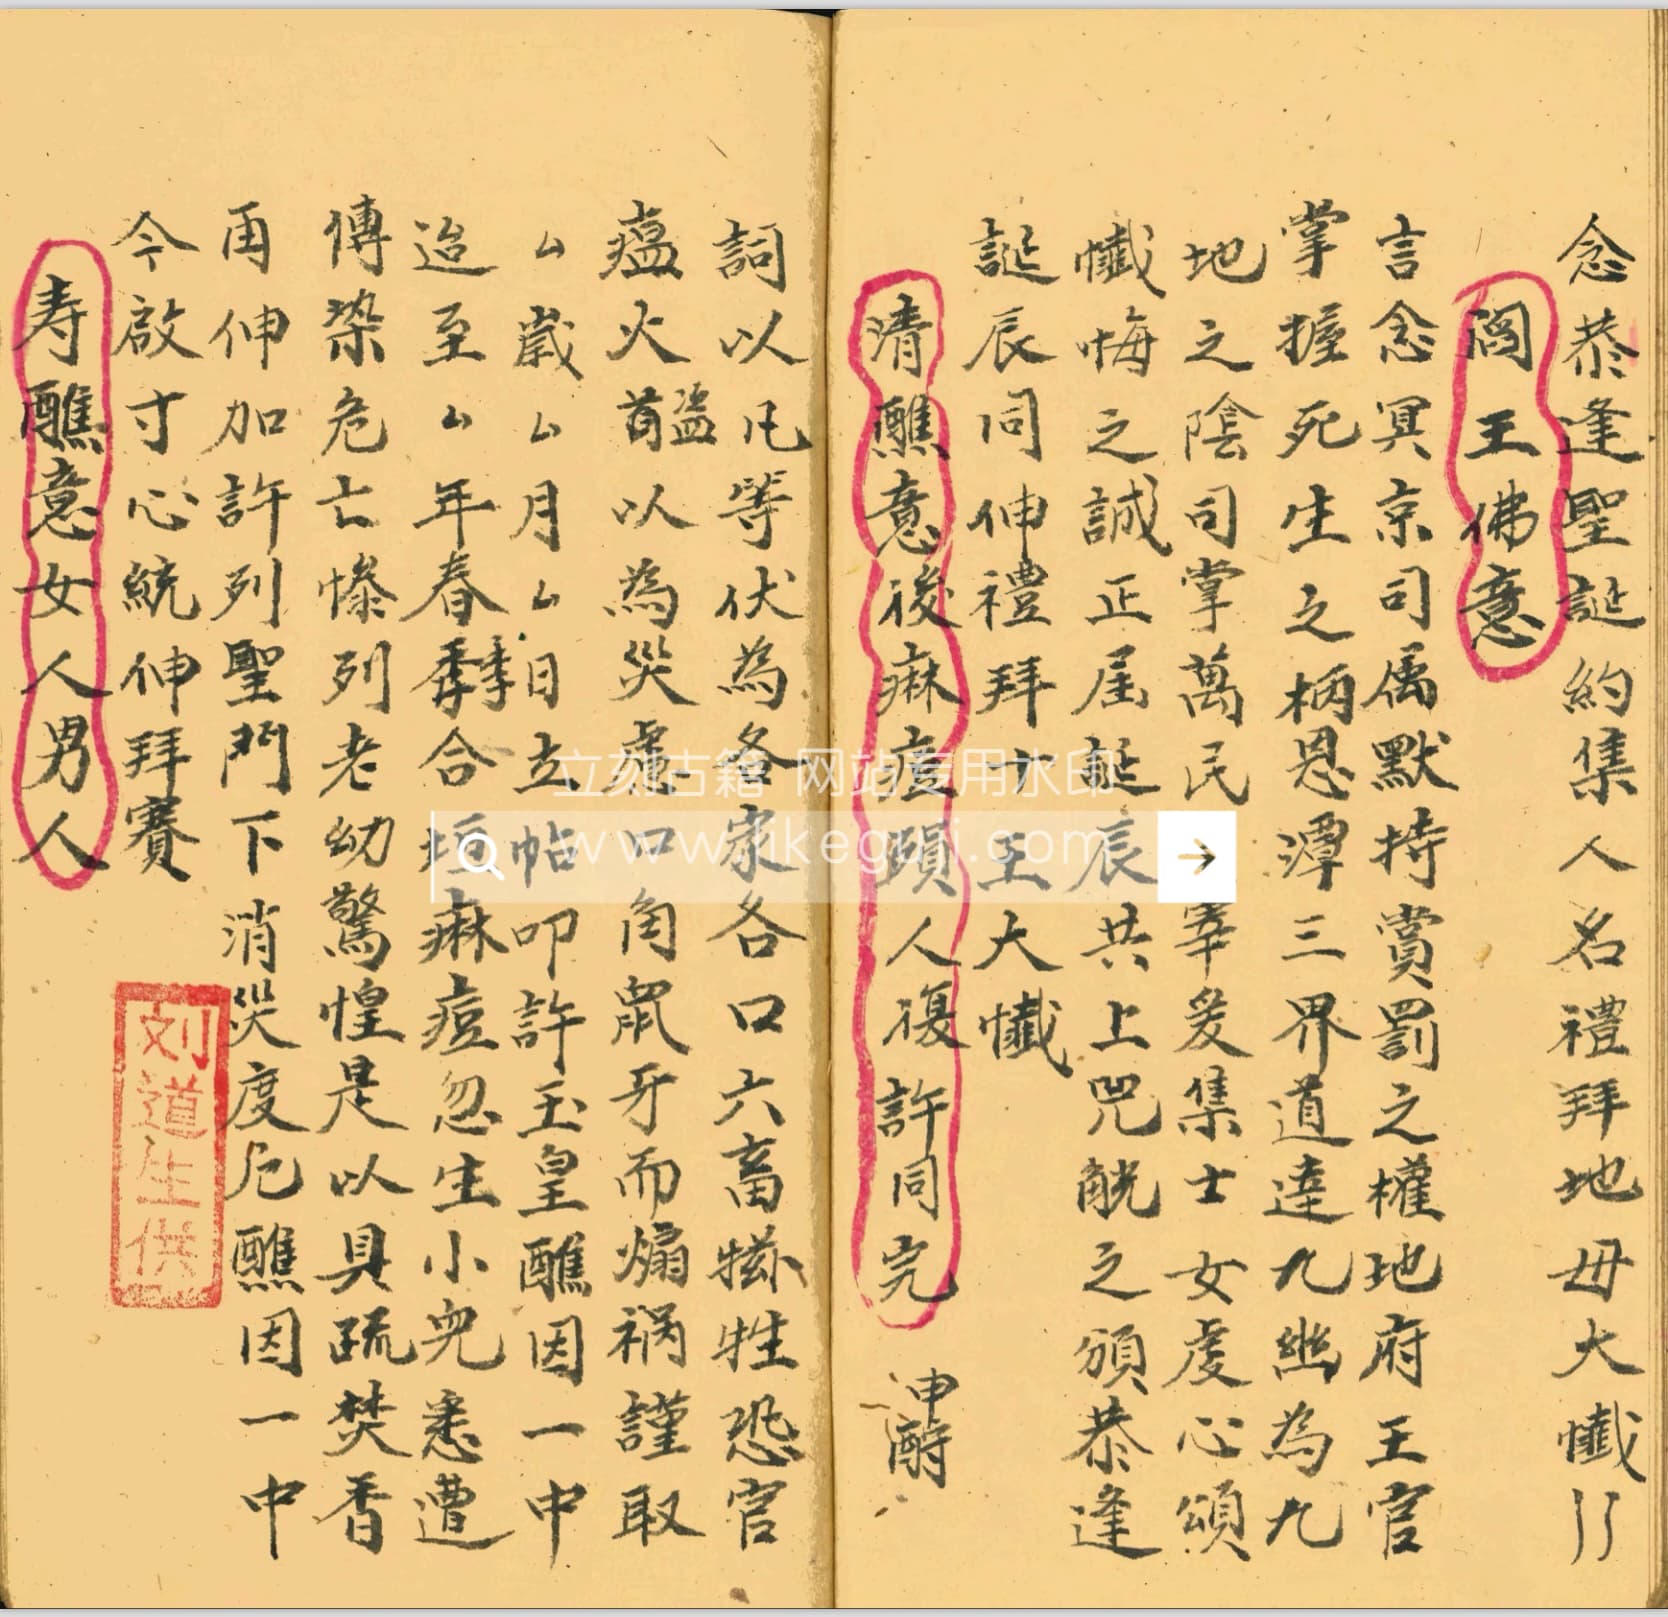 念恭逢聖誕約集人名禮拜地毋大懺
閻王佛意
言念冥京司属默持賞罰之權地府王官
掌握死生之柄恩潭三界道達九幽為九
地之陰司掌萬民宰爰集士女虔心頌
懺悔之誠正屆誕辰共上兕觥之頒恭逢
誕辰同伸禮拜十王大懺
清醮意後痳痘頭人復許同完
申酧
詞以凡等伏為各家各口六畜牲恐官
瘟火盜以為災慮口角鼠牙而煽禍謹取
厶歲厶月厶日立帖叩許玉皇醮因一中
迨至厶年春季合垣痳痘忽生小兒悉遭
傳染危亡慘列老幼驚惶是以具疏焚香
再伸加許列聖門下消災度厄醮因一中
今啟寸心統伸拜賽
寿醮意女人男人
刘道生供
立刻古籍 网站专用水印
www.likeguji.com